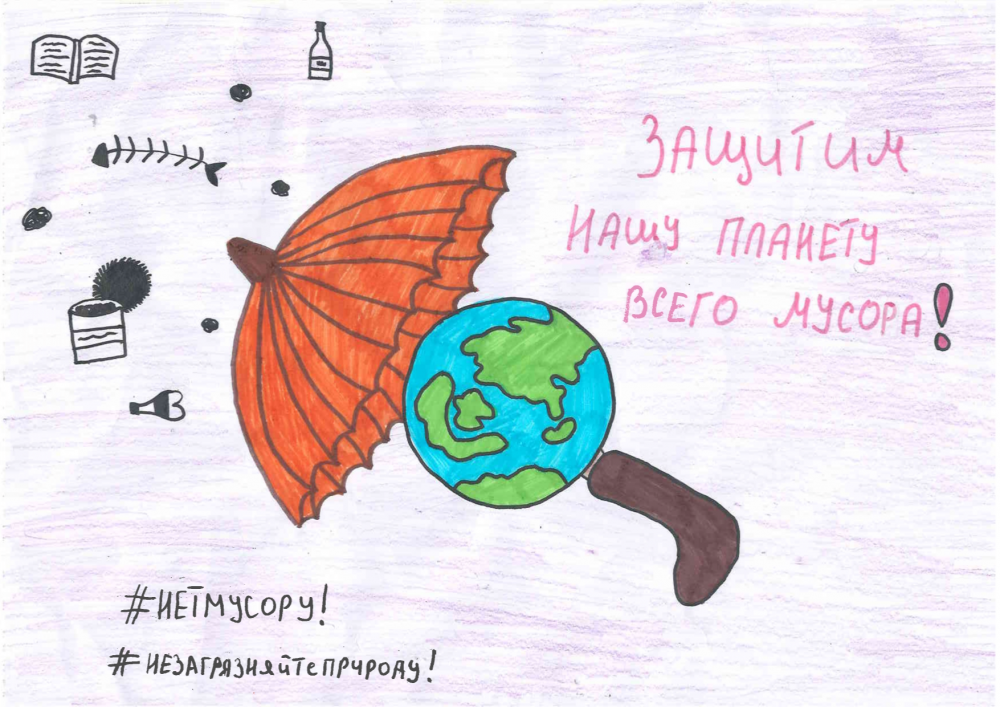 ЗАЩИТИМ
НАШУ ПЛАНЕТУ
ВСЕГО МУСОРА!
#НЕТМУСОРУ!
#НЕЗАГРЯЗНЯЙТЕПРИРОДУ!